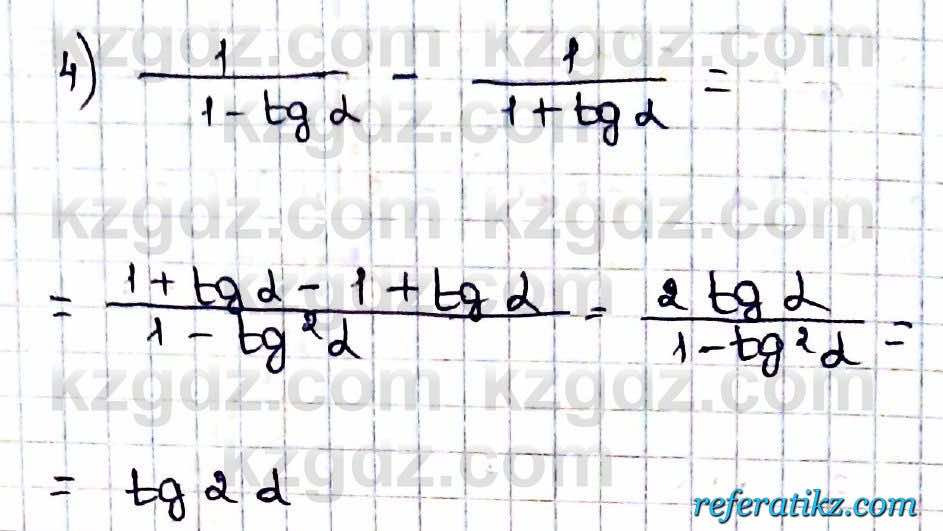 4) 1/(1 - tg α) - 1/(1 + tg α) =
= (1 + tg α - 1 + tg α)/(1 - tg²α) = (2 tg α)/(1 - tg²α) =
= tg 2 α
kzgdz.com kzgdz.com
kzgdz.com
kzgdz.com kzgdz.com
kzgdz.com
kzgdz.com kzgdz.com
kzgdz.com
referatikz.com